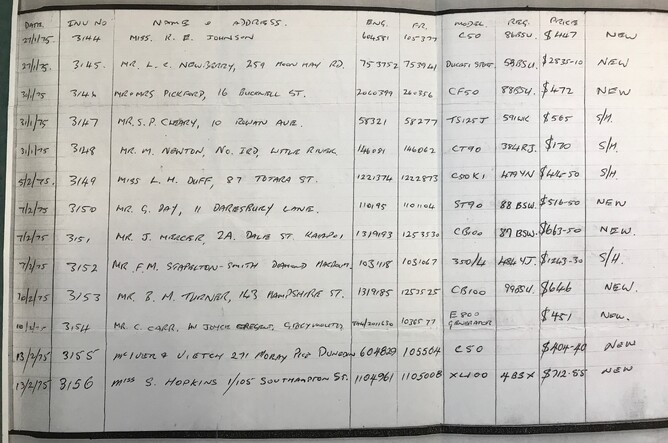 DATE INV NO NAME & ADDRESS. ENG. FR. MODEL. REG. PRICE
27/1/75 3144 MISS. R. E. JOHNSON 604581 C50 86BSU. $447 NEW
27/1/75 3145. MR. L. C. NEWBERRY, 259 RD. 753752 753941 DUCATI $2535-10 NEW
31/1/75 3146 MR & MRS PICKFORD, 16 BUCKNELL ST. 2060399 200356 CF50 88BSU. $472 NEW
31/1/75 3147 MR. S. P. CLEARY, 10 ROWAN AVE. 58321 58277 TS125J $565 S/H.
31/1/75 3148 MR. M. NEWTON, NO. 1RD, LITTLE RIVER. 146081 146062 CT90 $170 S/H.
5/2/75. 3149 MISS L. M. DUFF, 87 TOTARA ST. 1221374 1222873 C50K1 S/H.
7/2/75 3150 MR. G. DAY, 11 DARESBURY LANE. 110195 1101104 ST90 88 BSW. $516-50 NEW
7/2/75 3151 MR. J. MERCER, 2A. DALE ST. KAIAPOI 1319193 1253530 CB100 87 BSW. $663-50 NEW.
7/2/75 3152 MR. F. M. STAPELTON-SMITH DIAMOND HARBOUR. 1031118 1031067 350/4 $1243-30 S/H.
10/2/75 3153 MR. B. M. TURNER, 143 HAMPSHIRE ST. 1319185 1253525 CB100 99BSW. $646 NEW.
3154 MR. C. CARR, 1038577 E800 GENERATOR $451 NEW.
13/2/75 3155 MCIVER & VEITCH 271 MORAY PLCE DUNEDIN 604829 105504 C50 $404-40 NEW
13/2/75 3156 MISS S. HOPKINS 1/105 SOUTHAMPTON ST. 1104961 1105008 XL100 4BSX $712-55 NEW